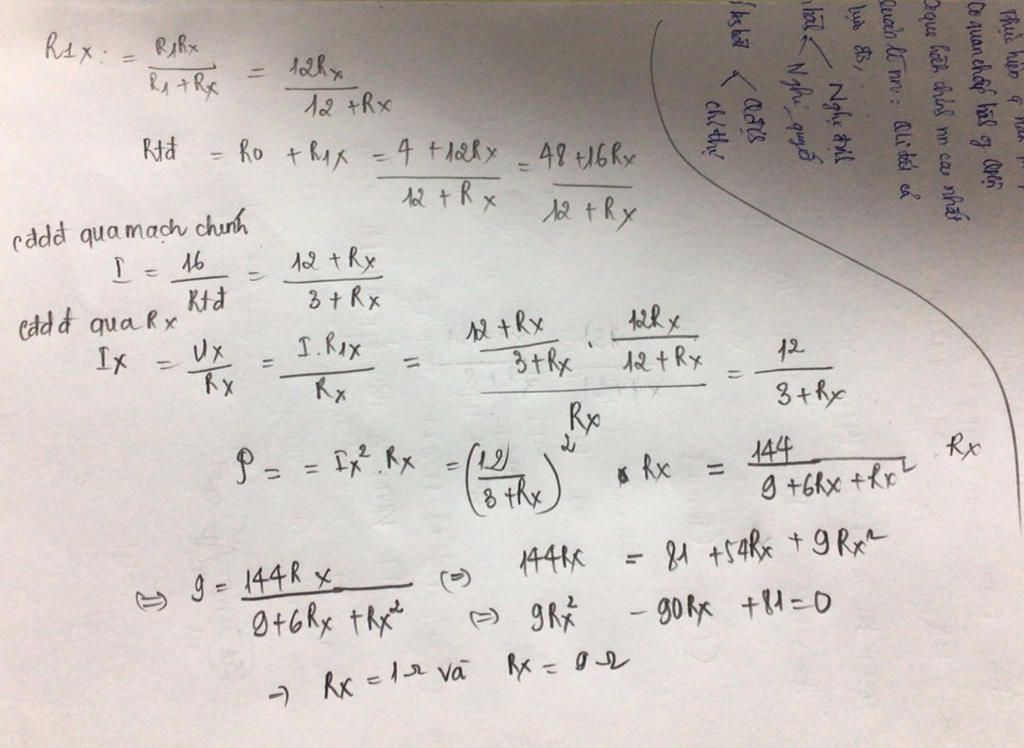 R1x: = R1Rx / R1 + Rx = 12Rx / 12 + Rx
Rtđ = R0 + R1x = 4 + 12Rx / 12 + Rx = 48 + 16Rx / 12 + Rx
cđdđ qua mạch chính
I = 16 / Rtđ = 12 + Rx / 3 + Rx
cđdđ qua Rx
Ix = Ux / Rx = I.R1x / Rx = 12 + Rx / 3 + Rx . 12Rx / 12 + Rx / Rx = 12 / 3 + Rx
P = = Ix² . Rx = (12 / 3 + Rx)² . Rx = 144 / 9 + 6Rx + Rx² . Rx
⇔ 9 = 144Rx / 9 + 6Rx + Rx² (=) 144Rx = 81 + 54Rx + 9Rx²
(=) 9Rx² - 90Rx + 81 = 0
→ Rx = 1Ω và Rx = 9Ω
Thực hiện q
Cơ quan chấp hành q
cao nhất
Nghị định
Nghị quyết
QĐ
chỉ thị